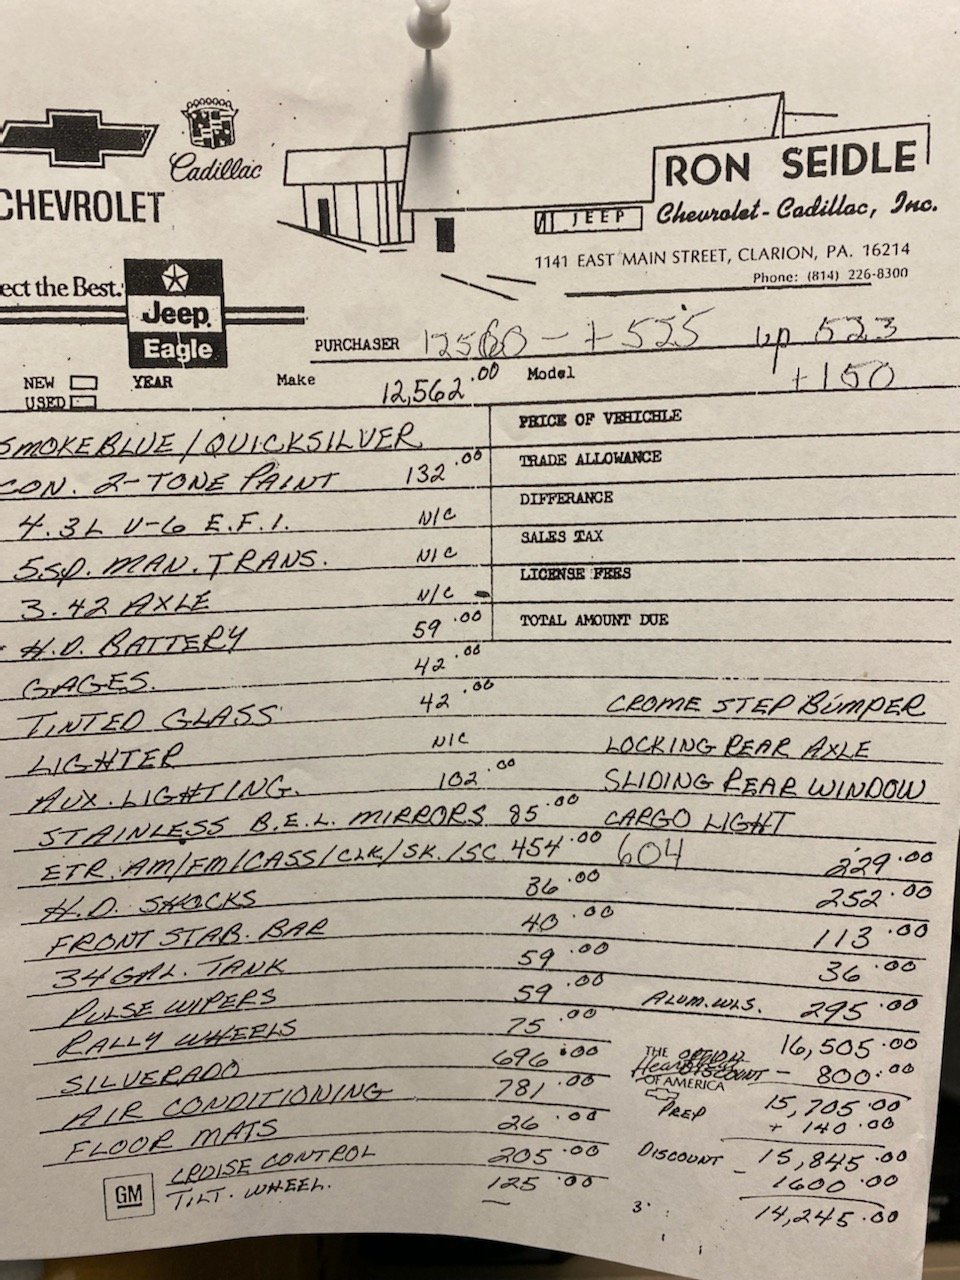 Cadillac
CHEVROLET
RON SEIDLE
JEEP
Chevrolet-Cadillac, Inc.
1141 EAST MAIN STREET, CLARION, PA. 16214
Phone: (814) 226-8300
ect the Best.
Jeep
Eagle
PURCHASER 12560 - + 525 up 523
NEW YEAR Make 12,562.00 Model +150
USED
SMOKE BLUE / QUICKSILVER PRICE OF VEHICHLE
CON. 2-TONE PAINT 132.00 TRADE ALLOWANCE
4.3L V-6 E.F.I. N/C DIFFERANCE
5 Sp. MAN. TRANS. N/C SALES TAX
3.42 AXLE N/C LICENSE FEES
H.D. BATTERY 59.00 TOTAL AMOUNT DUE
GAGES. 42.00
TINTED GLASS 42.00 CROME STEP BUMPER
LIGHTER N/C LOCKING REAR AXLE
AUX. LIGHTING. 102.00 SLIDING REAR WINDOW
STAINLESS B.E.L. MIRRORS 85.00 CARGO LIGHT
ETR. AM/FM/CASS/CLK/SK./SC 454.00 604 229.00
H.D. SHOCKS 36.00 252.00
FRONT STAB. BAR 40.00 113.00
34 GAL. TANK 59.00 36.00
PULSE WIPERS 59.00 ALUM. WLS. 295.00
RALLY WHEELS 75.00 16,505.00
SILVERADO 696.00 THE OPTION
Heartbeat DISCOUNT - 800.00
OF AMERICA
AIR CONDITIONING 781.00 PREP 15,705.00
+ 140.00
FLOOR MATS 26.00
CRUISE CONTROL 205.00 DISCOUNT 15,845.00
GM TILT. WHEEL. 125.00 - 1600.00
14,245.00